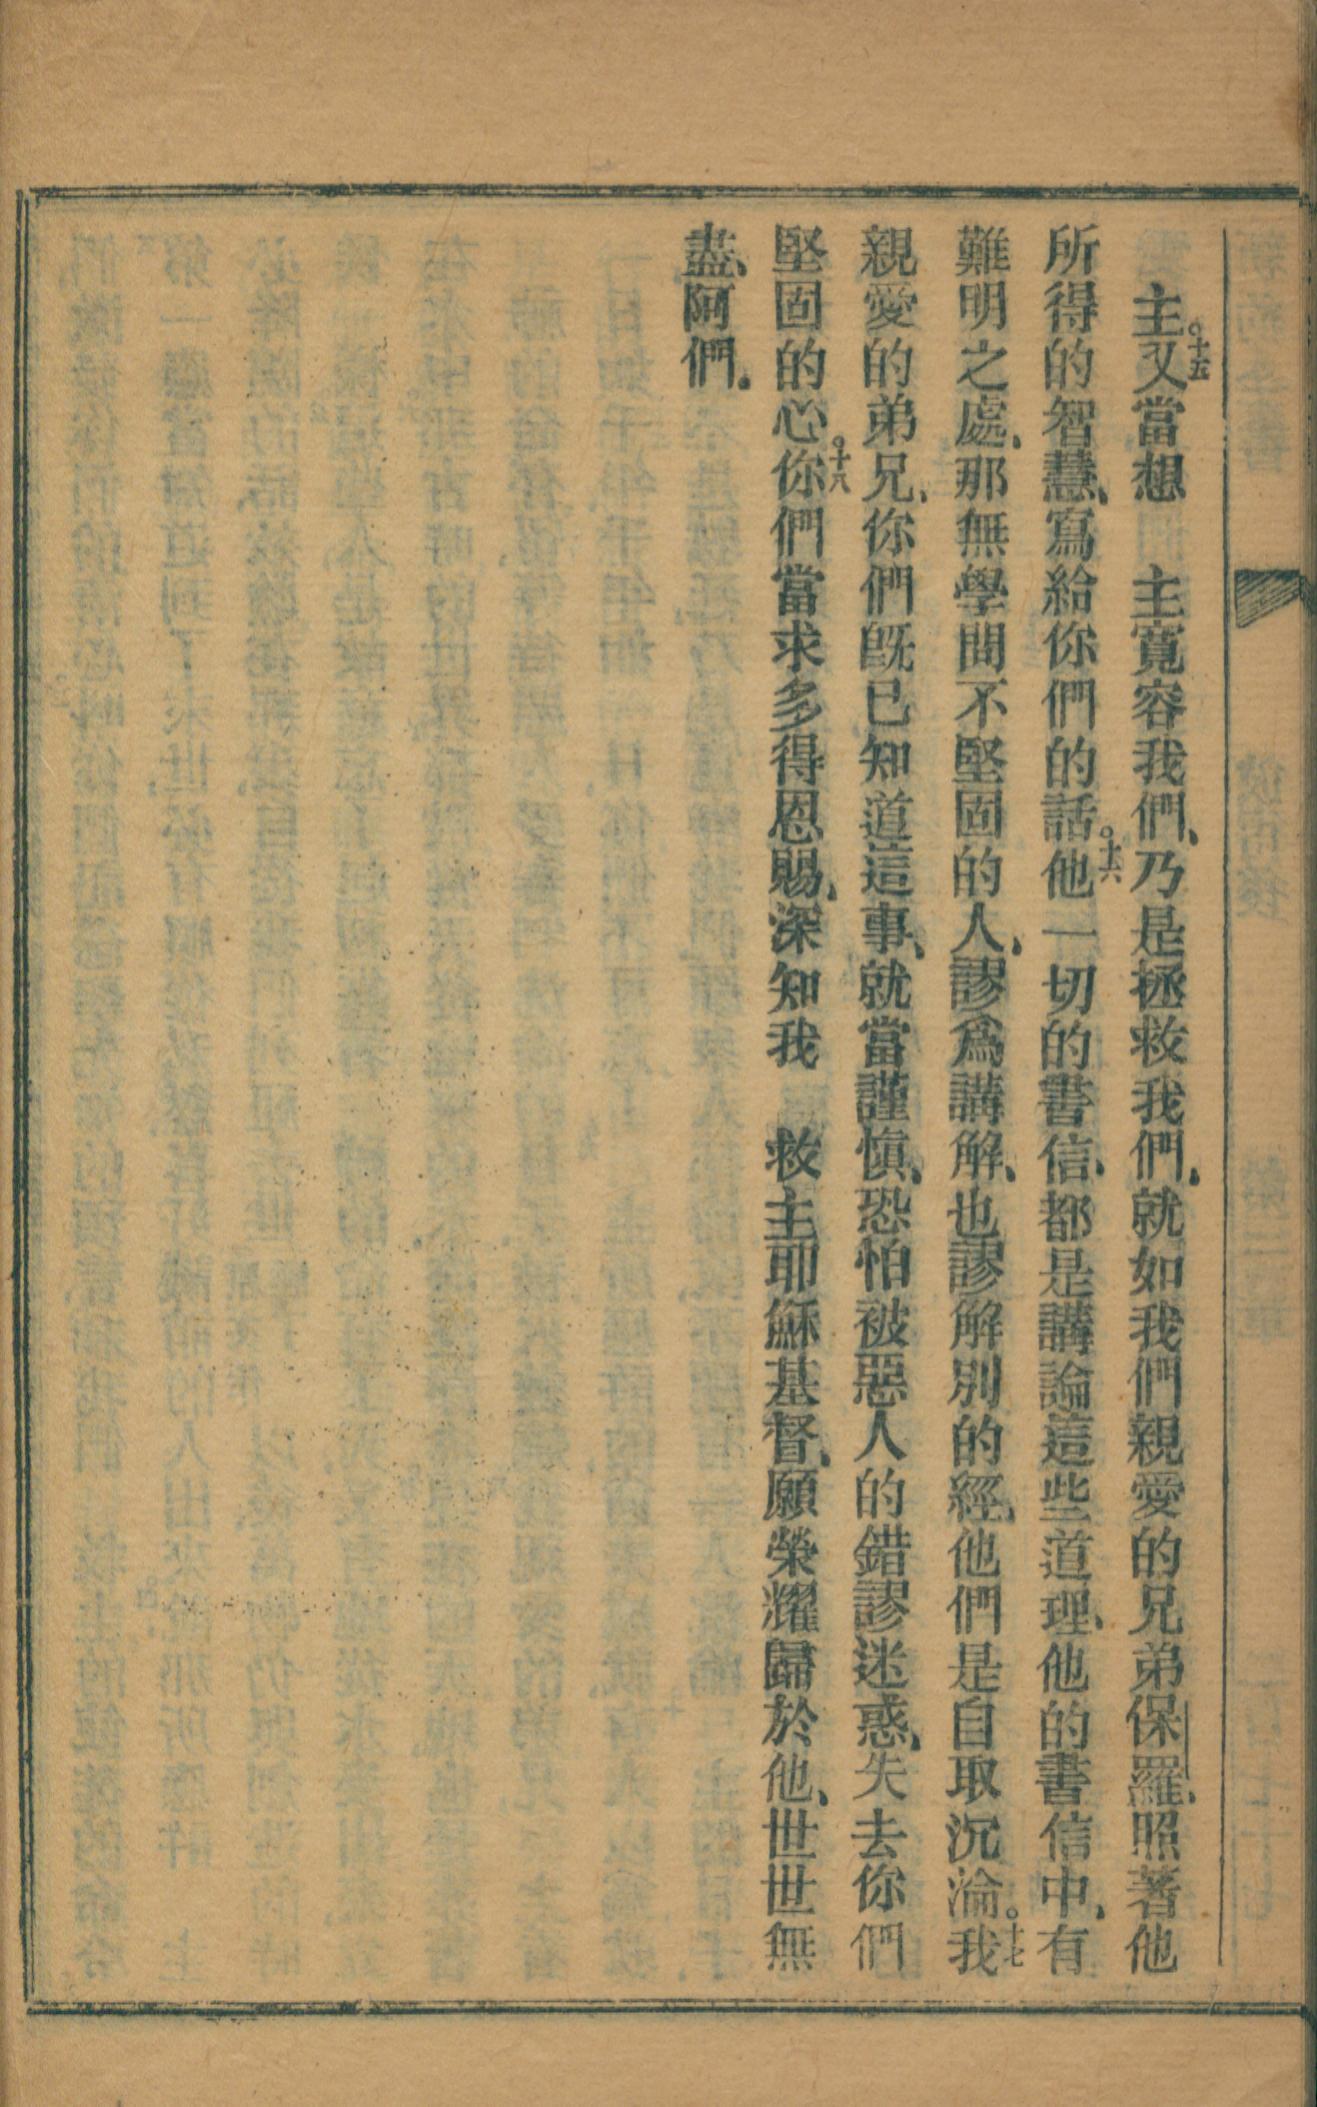 主又十五當想　主寬容我們、乃是拯救我們、就如我們親愛的兄弟保羅、照著他
所得的智慧、寫給你們的話他十六一切的書信、都是講論這些道理、他的書信中、有
難明之處、那無學問不堅固的人、謬爲講解、也謬解別的經、他們是自取沉淪。我十七
親愛的弟兄、你們旣已知道這事、就當謹愼、恐怕被惡人的錯謬迷惑、失去你們
堅固的心你十八們當求多得恩賜、深知我　救主耶穌基督、願榮耀歸於他、世世無
盡、阿們。